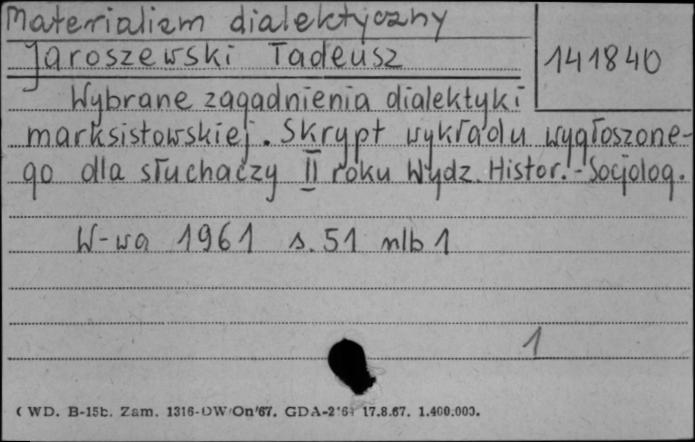 Materializm dialektyczny
Jaroszewski Tadeusz
141840
Wybrane zagadnienia dialektyki
marksistowskiej. Skrypt wykładu wygłoszone-
go dla słuchaczy II roku Wydz. Histor.-Socjolog.
W-wa 1961 s. 51 nlb 1
1
WD. B-15b. Zam. 1316-DW/On/67. 17.8.67. 1.400.000.